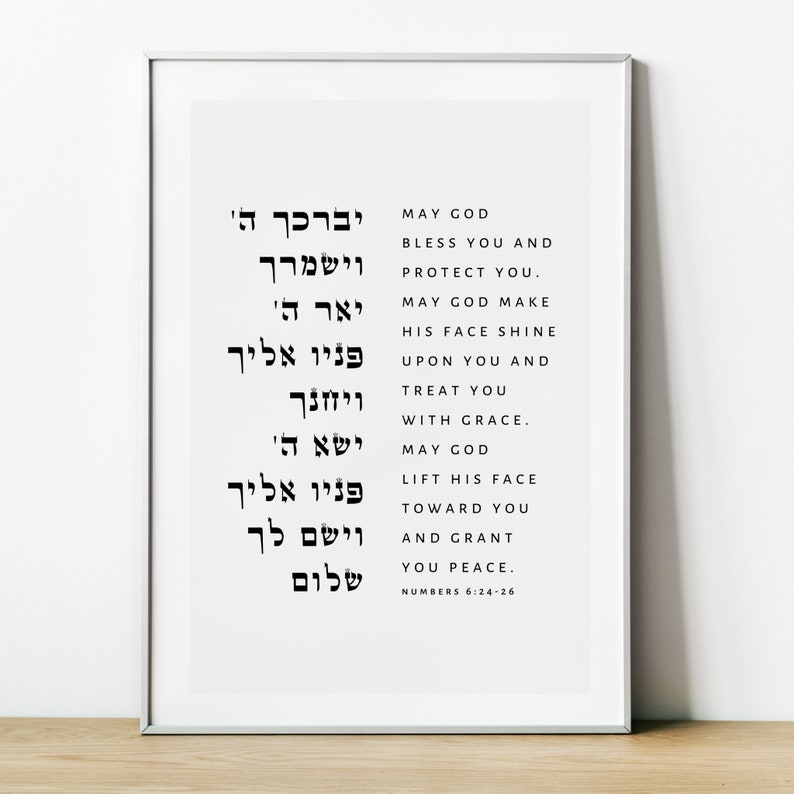 יברכך ה'
וישמרך
יאר ה'
פניו אליך
ויחנך
ישא ה'
פניו אליך
וישם לך
שלום
MAY GOD
BLESS YOU AND
PROTECT YOU.
MAY GOD MAKE
HIS FACE SHINE
UPON YOU AND
TREAT YOU
WITH GRACE.
MAY GOD
LIFT HIS FACE
TOWARD YOU
AND GRANT
YOU PEACE.
NUMBERS 6:24-26